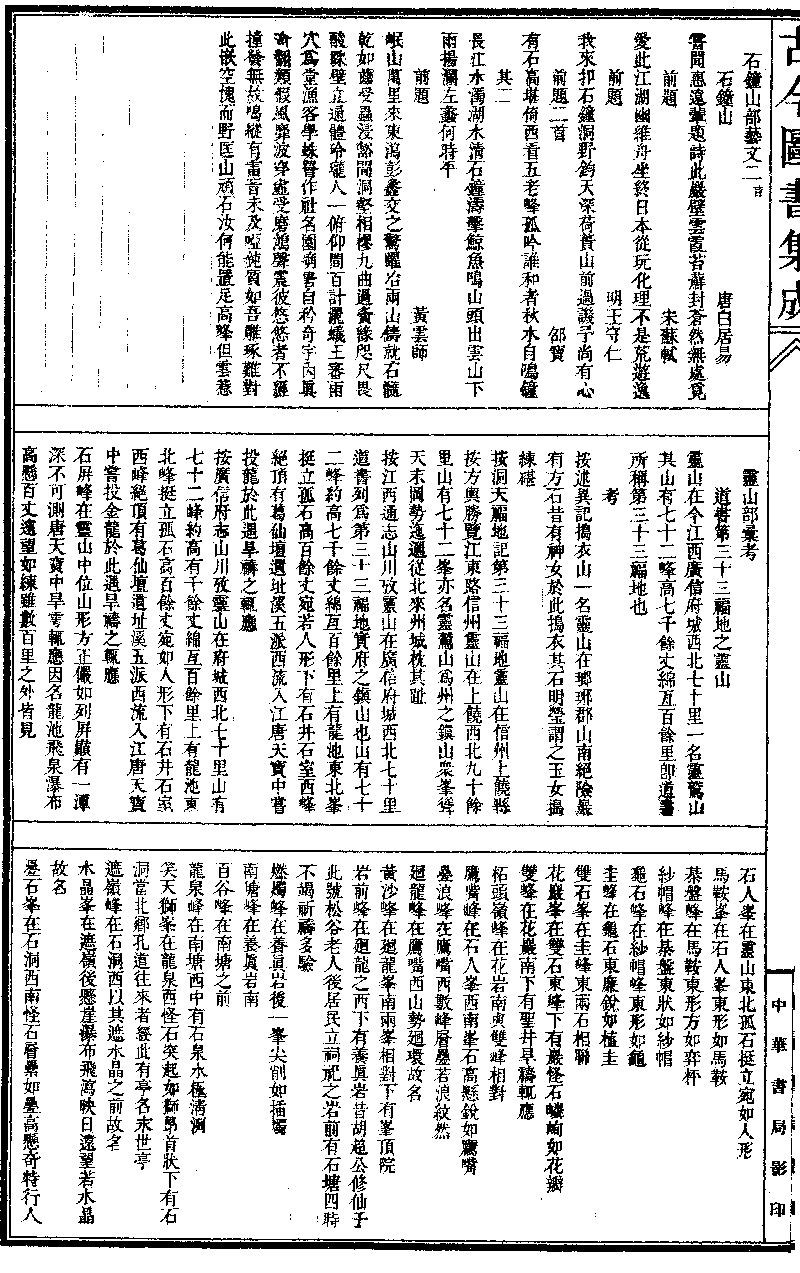 古今圖書集成
石鐘山部藝文二詩
石鐘山　唐白居易
前題　宋蘇軾
愛此江湖幽維舟坐終日本從玩化理不是荒遊逸
前題　明王守仁
我來扣石鐘洞野鈞天深荷蕢山前過譏予尚有心
前題二首　邵寶
有石高堪倚西看五老峰孤吟誰和者秋水自鳴鐘
其二
長江水濁湖水清石鐘濤擊鯨魚鳴山頭出雲山下
雨揚瀾左蠡何時平
前題　黃雲師
岷山萬里來東瀉彭蠡交之驚躍冶兩山鑄就石髓
此嵌空愧而野匡山頑石汝何能置足高峰但雲惹
靈山部彙考
道書第三十三福地之靈山
靈山在今江西廣信府城西北七十里一名靈鷲山
其山有七十二峰高七千餘丈綿亙百餘里卽道書
所稱第三十三福地也
考
按述異記搗衣山一名靈山在瑯琊郡山南絕險巖
有方石昔有神女於此搗衣其石明瑩謂之玉女搗
練碪
按洞天福地記第三十三福地靈山在信州上饒縣
按方輿勝覽江東路信州靈山在上饒西北九十餘
里山有七十二峯亦名靈鷲山爲州之鎮山衆峯聳
天末岡勢逶迤從北來州城枕其趾
按江西通志山川攷靈山在廣信府城西北七十里
道書列爲第三十三福地實府之鎮山也山有七十
二峰約高七千餘丈綿亙百餘里上有龍池東北峯
挺立孤石高百餘丈宛若人形下有石井石室西峰
絕頂有葛仙壇遺址溪五派西流入江唐天寶中嘗
投龍於此遇旱禱之輒應
按廣信府志山川攷靈山在府城西北七十里山有
七十二峰約高有千餘丈綿亙百餘里上有龍池東
北峰挺立孤石高百餘丈宛如人形下有石井石室
西峰絕頂有葛仙壇遺址溪五派西流入江唐天寶
中嘗投金龍於此遇旱禱之輒應
石屏峰在靈山中位山形方正儼如列屏巔有一潭
深不可測唐天寶中旱雩輒應因名龍池飛泉瀑布
高懸百丈遠望如練雖數百里之外皆見
石人峯在靈山東北孤石挺立宛如人形
馬鞍峯在石人峯東形如馬鞍
棊盤峰在馬鞍東形方如弈枰
紗帽峰在棊盤東狀如紗帽
龜石峰在紗帽峰東形如龜
圭峰在龜石東廉銳如植圭
雙石峯在圭峰東兩石相聯
花巖峯在雙石東峰下有巖怪石嶙峋如花瓣
雙峰在花巖南下有聖井旱禱輒應
柘頭嶺峰在花岩南與雙峰相對
鷹嘴峰在石人峯西南峯石高懸銳如鷹嘴
疊浪峰在鷹嘴西數峰層疊若浪紋然
廻龍峰在鷹嘴西山勢廻環故名
黃沙峰在廻龍峯南兩峯相對下有峯頂院
岩前峰在廻龍之西下有養眞岩昔胡超公修仙于
此號松谷老人後居民立祠祀之岩前有石塘四時
不竭祈禱多驗
燃燭峰在養眞岩後一峯尖削如插燭
南塘峰在養眞岩南
百谷峰在南塘之前
龍泉峰在南塘西中有石泉水極淸洌
笑天獅峯在龍泉西怪石突起如獅昂首狀下有石
洞當北鄉孔道往來者經此有亭名永世亭
遮嶺峰在石洞西以其遮水晶之前故名
水晶峯在遮嶺後懸崖瀑布飛瀉映日遠望若水晶
故名
疊石峯在石洞西南怪石層疊如壘高懸奇特行人
中華書局影印